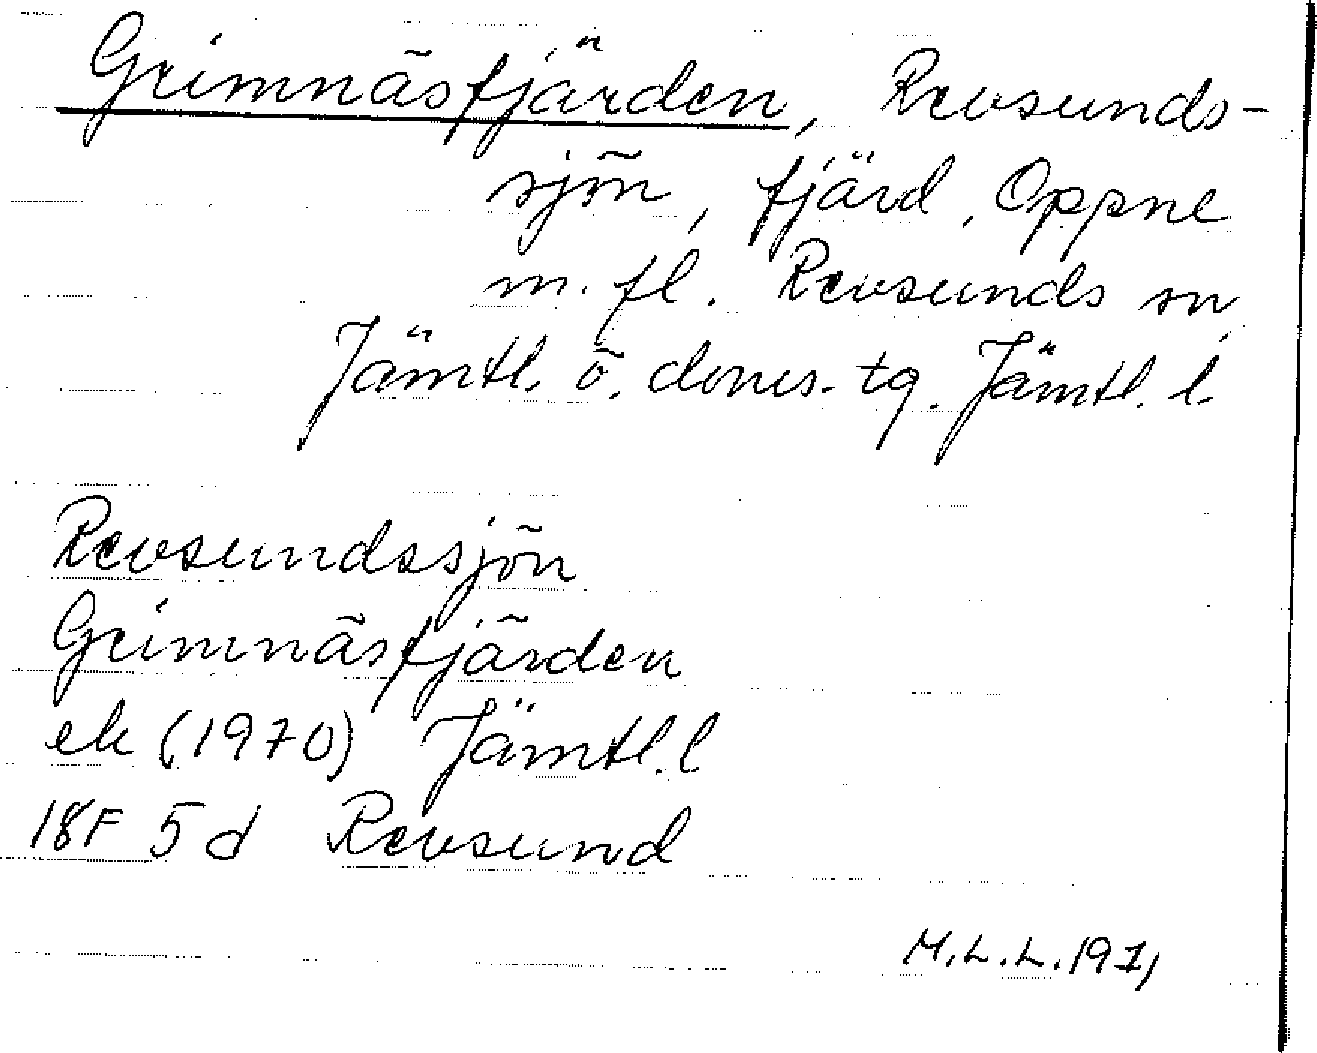 Grimnäsfjärden, Revsunds-
sjön, fjärd, Oppne
m. fl. Revsunds sn,
Jämtl. ö. doms. tg. Jämtl. l.
Revsundssjön
Grimnäsfjärden
ek (1970) Jämtl. l
18F 5d Revsund
M.L.L. 1971